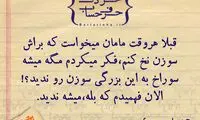 حرف
حساب
قبلا هروقت مامان میخواست که براش
سوزن نخ کنم،فکر میکردم مگه میشه
سوراخ به این بزرگی سوزن رو ندید؟!
الان فهمیدم که بله،میشه ندید.